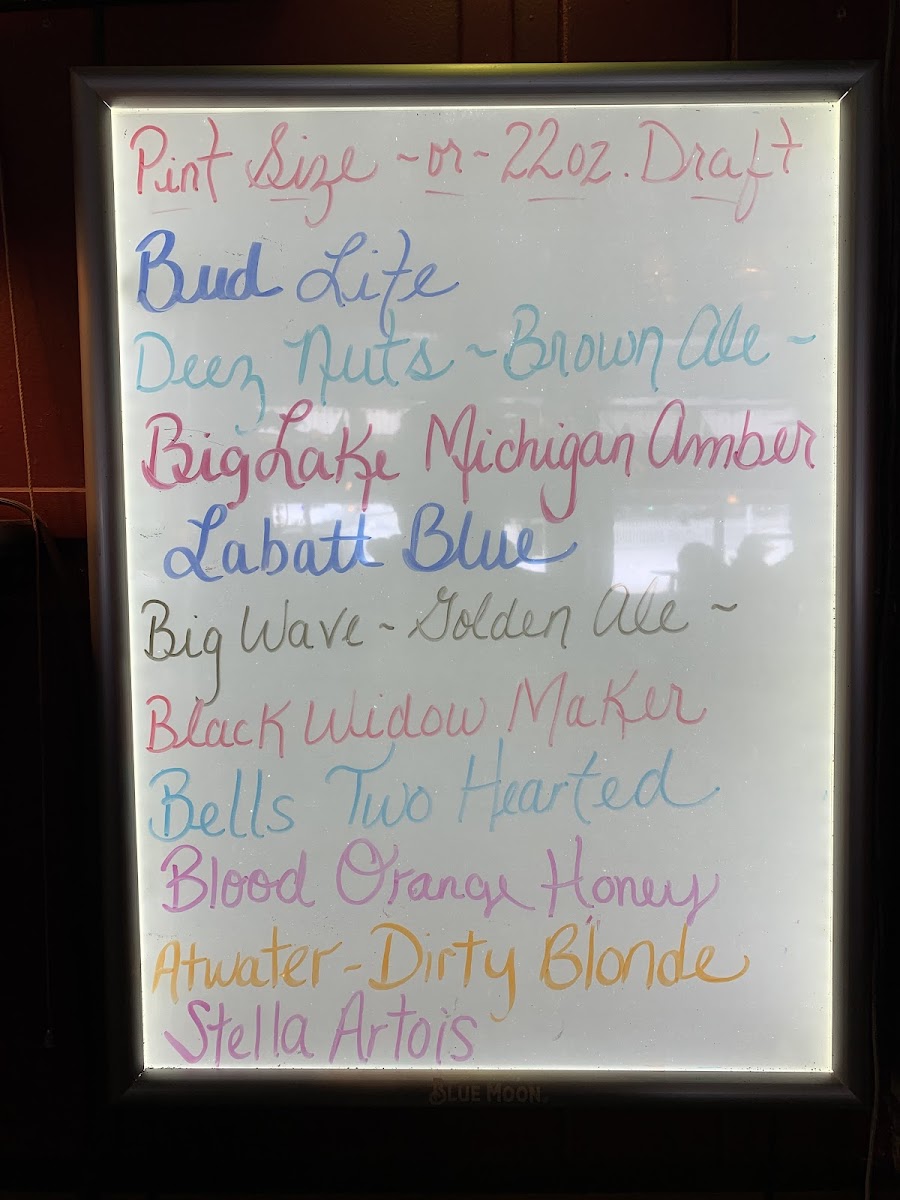 Pint Size ~or- 22oz. Draft
Bud Lite
Deez Nuts ~Brown Ale~
Big Lake Michigan Amber
Labatt Blue
Big Wave ~ Golden Ale ~
Black Widow Maker
Bells Two Hearted
Blood Orange Honey
Atwater - Dirty Blonde
Stella Artois
BLUE MOON